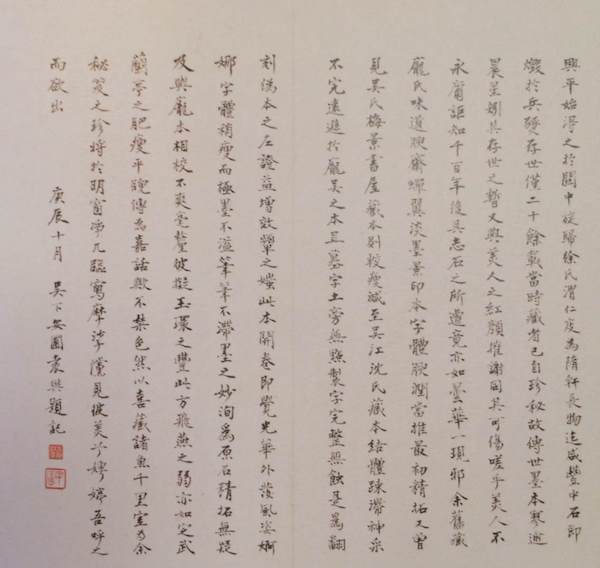 興平始得之於關中旋歸徐氏渭仁庋為隋軒長物迄咸豐中石即
燬於兵燹存世僅二十餘載當時藏者已自珍秘故傳世墨本寥逾
晨星矧其存世之暫又與美人之紅顏摧謝同其可傷嗟乎美人不
永詎知千百年後其志石之所遭竟亦如曇華一現邪余舊藏
龐氏味道腴齋蟬翼淡墨景印本字體腴潤當推最初精拓又曾
見吳氏梅景書屋藏本則較瘦減至吳江沈氏藏本結體疎滯神采
不完遠遜於龐吳之本且墓字土旁無點製字完整無蝕是為翻
刻偽本之左證益增效顰之媸此本開卷即覺光華外發風姿婀
娜字體稍瘦而極墨不溢筆筆不滯墨之妙洵為原石精拓無疑
及與龐本相校不爽毫釐彼擬玉環之豐此方飛燕之弱亦如定武
蘭亭之肥瘦乎傳為嘉話歟不禁色然以喜藏諸魚千里室乃余
秘笈之珍將於明窗棐几臨寫摩挲僅見彼美兮娉婷吾呼之
而欲出
庚辰十月 吳下安圃袁題記